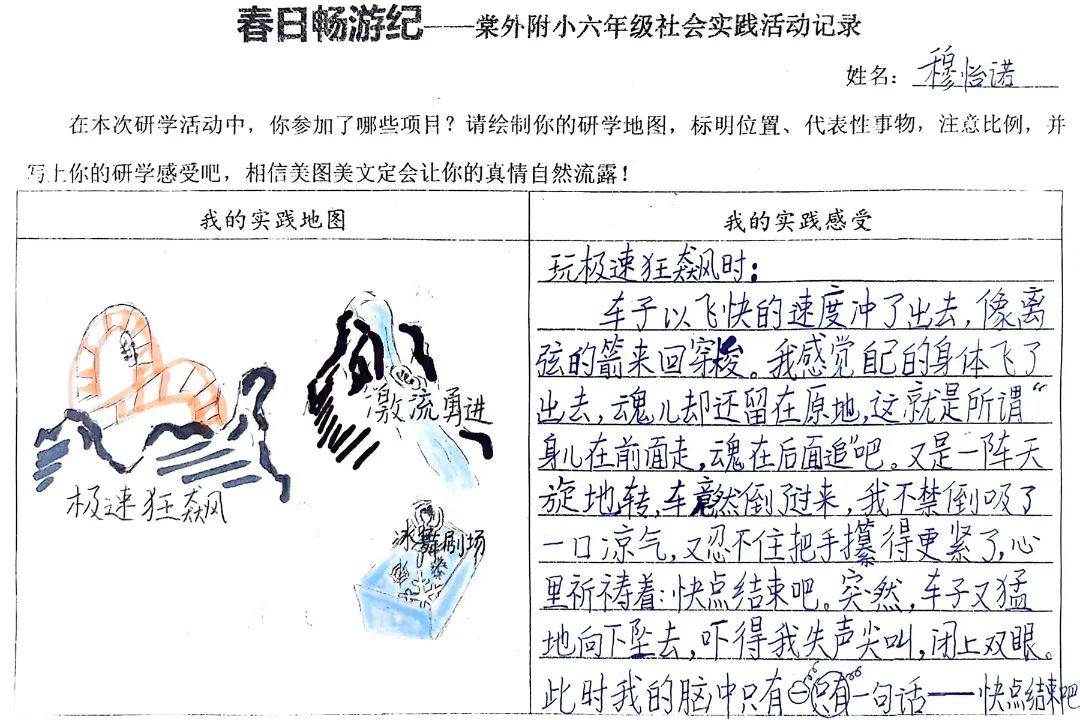 春日畅游纪——棠外附小六年级社会实践活动记录
姓名：穆怡诺
在本次研学活动中，你参加了哪些项目？请绘制你的研学地图，标明位置、代表性事物，注意比例，并
写上你的研学感受吧，相信美图美文定会让你的真情自然流露！
我的实践地图
极速狂飙
激流勇进
冰舞剧场
我的实践感受
玩极速狂飙时：
车子以飞快的速度冲了出去，像离
弦的箭来回穿梭。我感觉自己的身体飞了
出去，魂儿却还留在原地，这就是所谓“
身儿在前面走，魂在后面追”吧。又是一阵天
旋地转，车竟然倒了过来，我不禁倒吸了
一口凉气，又忍不住把手攥得更紧了，心
里祈祷着：快点结束吧。突然，车子又猛
地向下坠去，吓得我失声尖叫，闭上双眼。
此时我的脑中只有一句话——快点结束吧